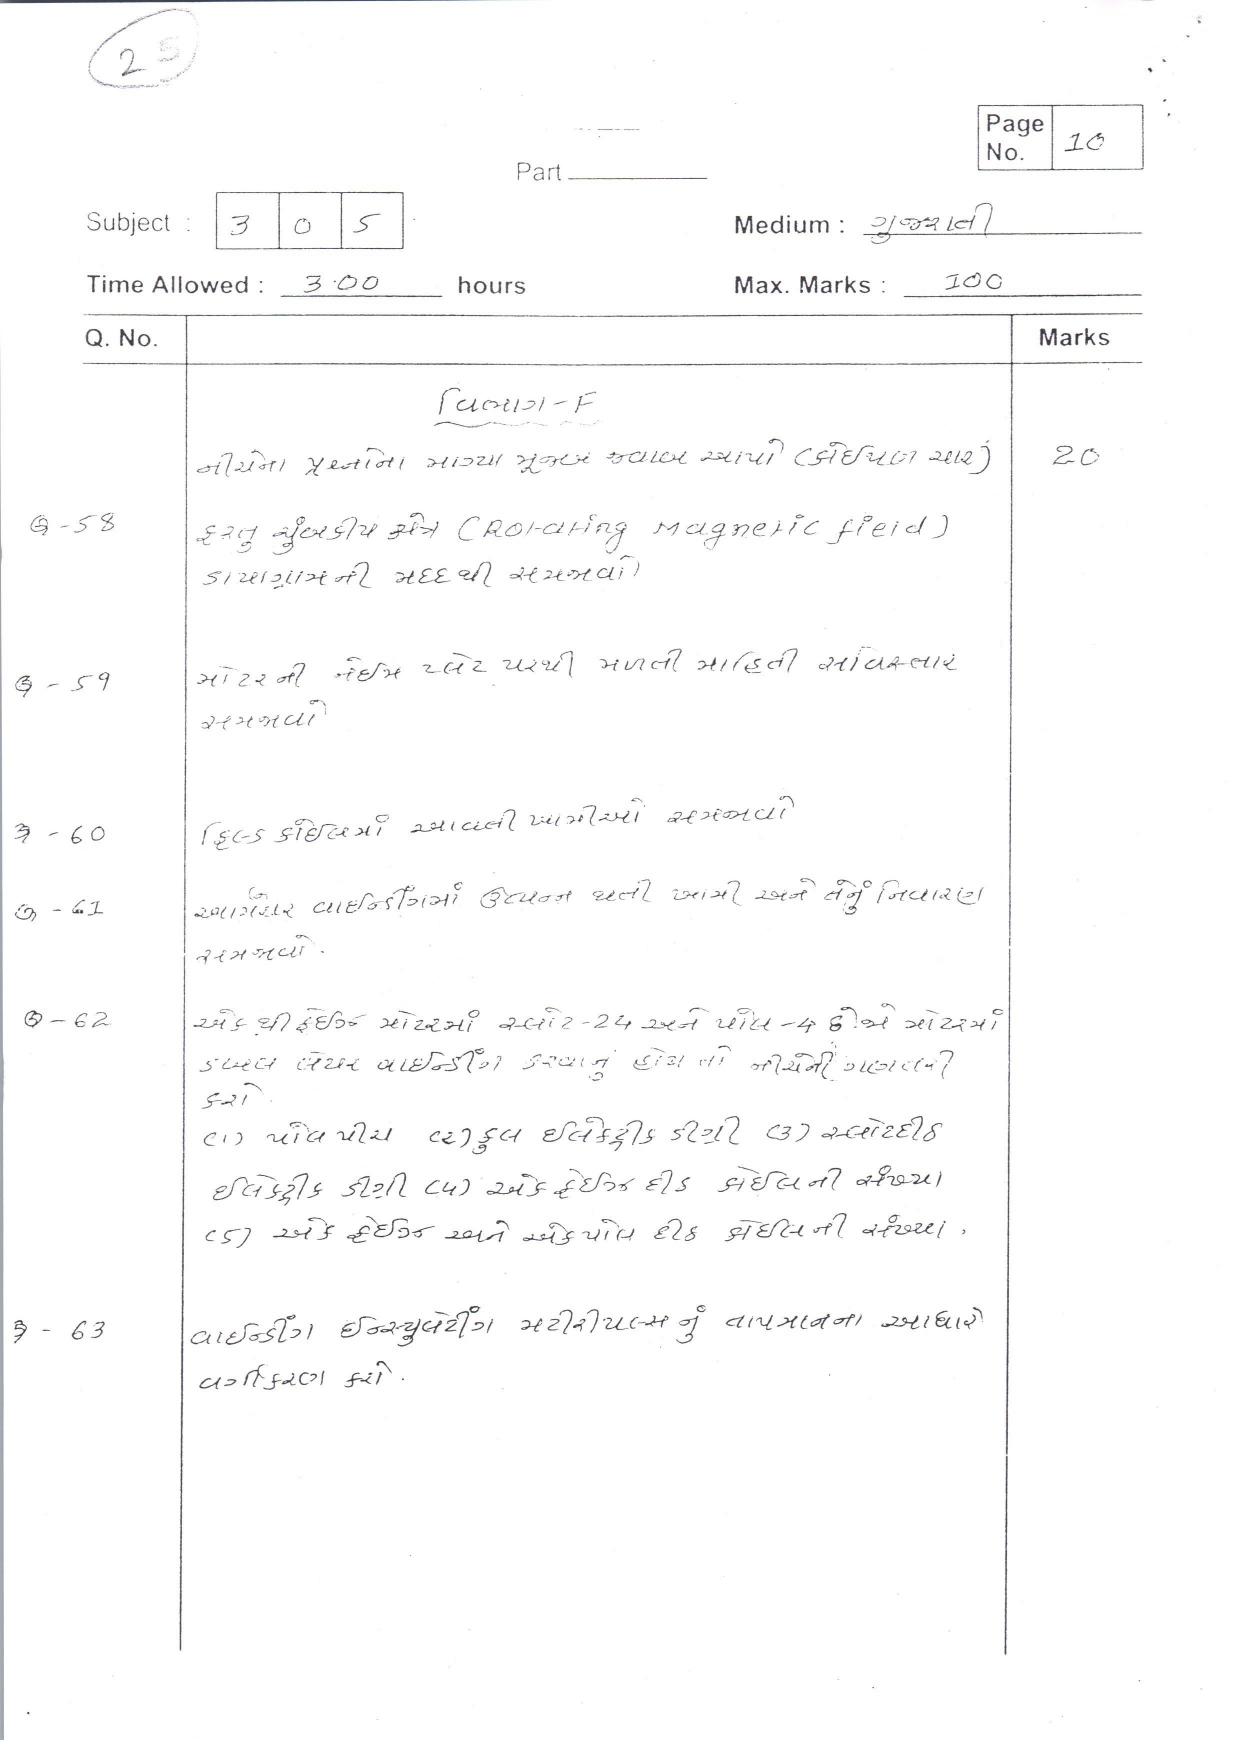 25
Page No. 10
Part
Subject : 3 0 5
Medium : ગુજરાતી
Time Allowed : 3.00 hours
Max. Marks : 100
Q. No. Marks
વિભાગ-F
નીચેના પ્રશ્નોના માગ્યા મુજબ જવાબ આપો (કોઈપણ ચાર) 20
Q-58 ફરતુ ચુંબકીય ક્ષેત્ર (Rotating Magnetic field)
ડાયાગ્રામની મદદથી સમજાવો
Q-59 મોટરની નેઈમ પ્લેટ પરથી મળતી માહિતી સવિસ્તાર
સમજાવો
Q-60 ફિલ્ડ કોઈલમાં આવતી ખામીઓ સમજાવો
Q-61 આર્મેચર વાઈન્ડીંગમાં ઉત્પન્ન થતી ખામી અને તેનું નિવારણ
સમજાવો.
Q-62 એક થ્રી ફેઈઝ મોટરમાં સ્લોટ-24 અને પોલ-4 છે.જો મોટરમાં
ડબલ લેયર વાઈન્ડીંગ કરવાનું હોય તો નીચેની ગણતરી
કરો.
(1) પોલ પીચ (2) કુલ ઈલેક્ટ્રીક ડીગ્રી (3) સ્લોટદીઠ
ઈલેક્ટ્રીક ડીગ્રી (4) એક ફેઈઝ દીઠ કોઈલની સંખ્યા
(5) એક ફેઈઝ અને એકપોલ દીઠ કોઈલની સંખ્યા.
Q-63 વાઈન્ડીંગ ઈન્સ્યુલેટીંગ મટીરીયલ્સ નું તાપમાનના આધારે
વર્ગીકરણ કરો.